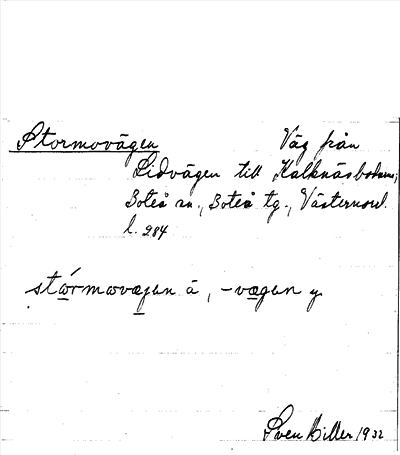 Stormovägen Väg från
Lidvägen till Kalknäsbodarna;
Boteå sn., Boteå tg., Västernorrl.
l. 284
stårmovægen ä, -vægen y
Sven Hiller 1932